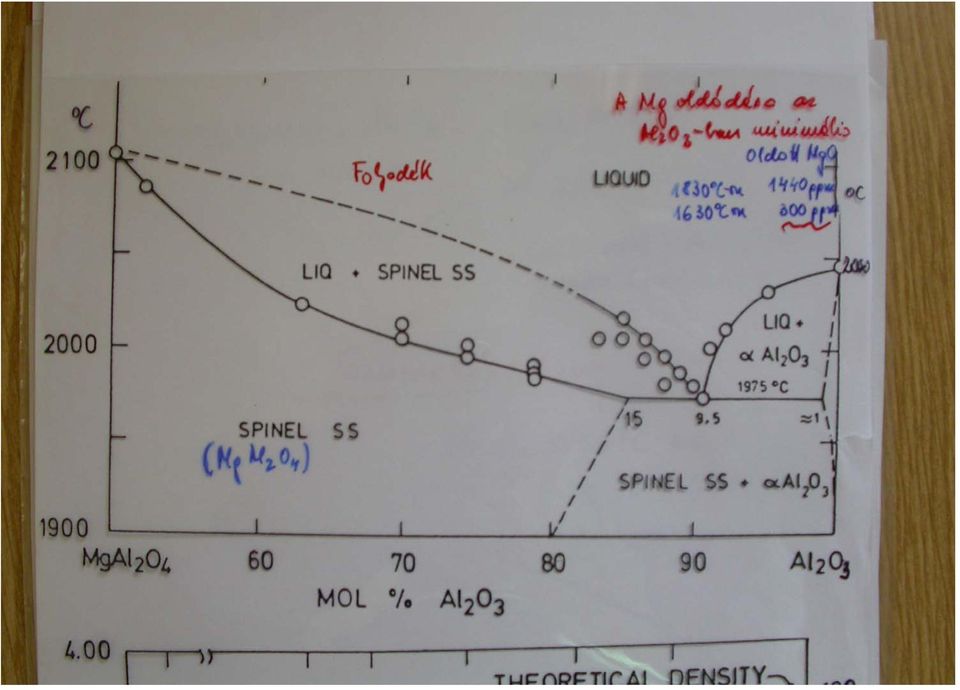 A Mg oldódása az
Al2O3-ban minimális
°C
Oldott MgO
2100
Folyadék
LIQUID
1830°C-on 1440 ppm
°C
1630°C-on 300 ppm
LIQ + SPINEL SS
LIQ +
2000
α Al2O3
1975 °C
15
9.5
≈1
SPINEL SS
(MgAl2O4)
SPINEL SS + αAl2O3
1900
MgAl2O4
60
70
80
90
Al2O3
MOL % Al2O3
4.00
THEORETICAL DENSITY